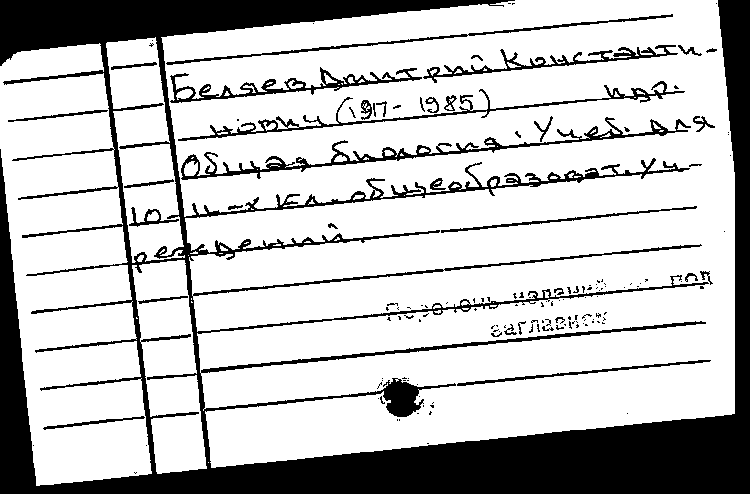 Беляев, Дмитрий Константи-
нович (1917-1985) и др.
Общая биология: Учеб. для
10-11-х кл. общеобразоват. уч-
реждений.
Перечень изданий см. под
заглавием